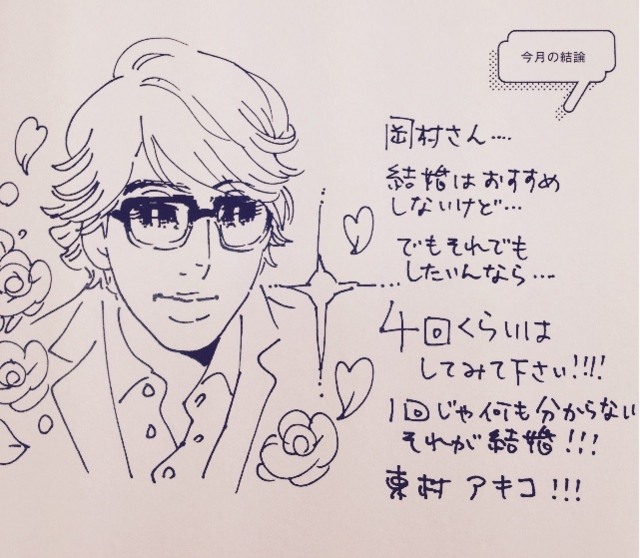 今月の結論
岡村さん….
結婚はおすすめ
しないけど…
でもそれでも
したいんなら….
4回くらいは
してみて下さい!!!!
1回じゃ何も分からない
それが結婚!!!
東村 アキコ!!!